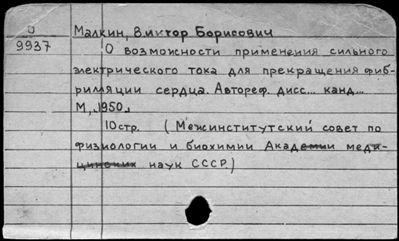 Малкин, Виктор Борисович
9937
О возможности применения сильного
электрического тока для прекращения фиб-
рилляции сердца. Автореф. дисс... канд...
М., 1950.
10стр. (Межинститутский совет по
физиологии и биохимии Академии меди-
цинских наук СССР.)